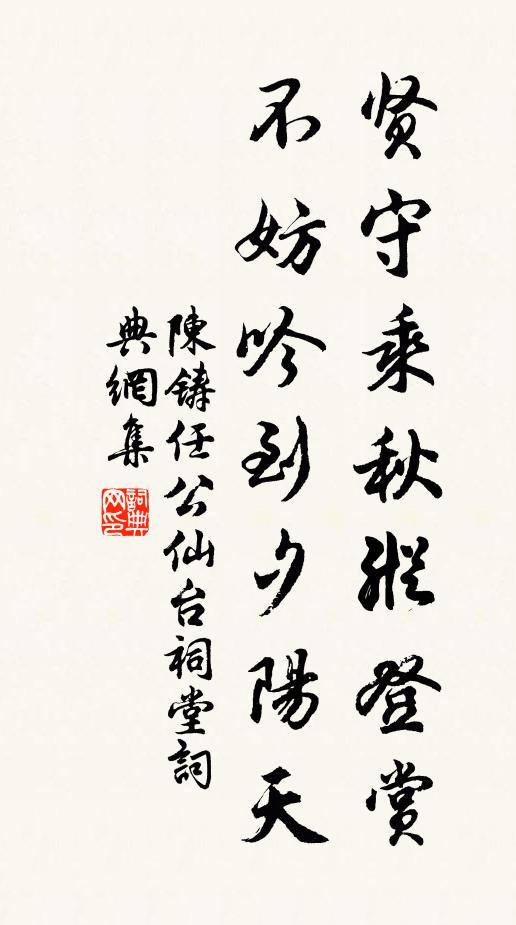 贤守乘秋縱登賞
不妨吟到夕陽天
陳鑄任公仙台祠堂詞
典網集
詞典网印